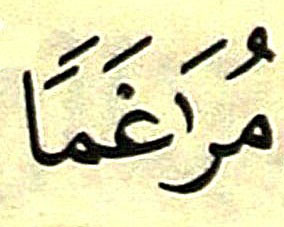 مُرَاغَمًا